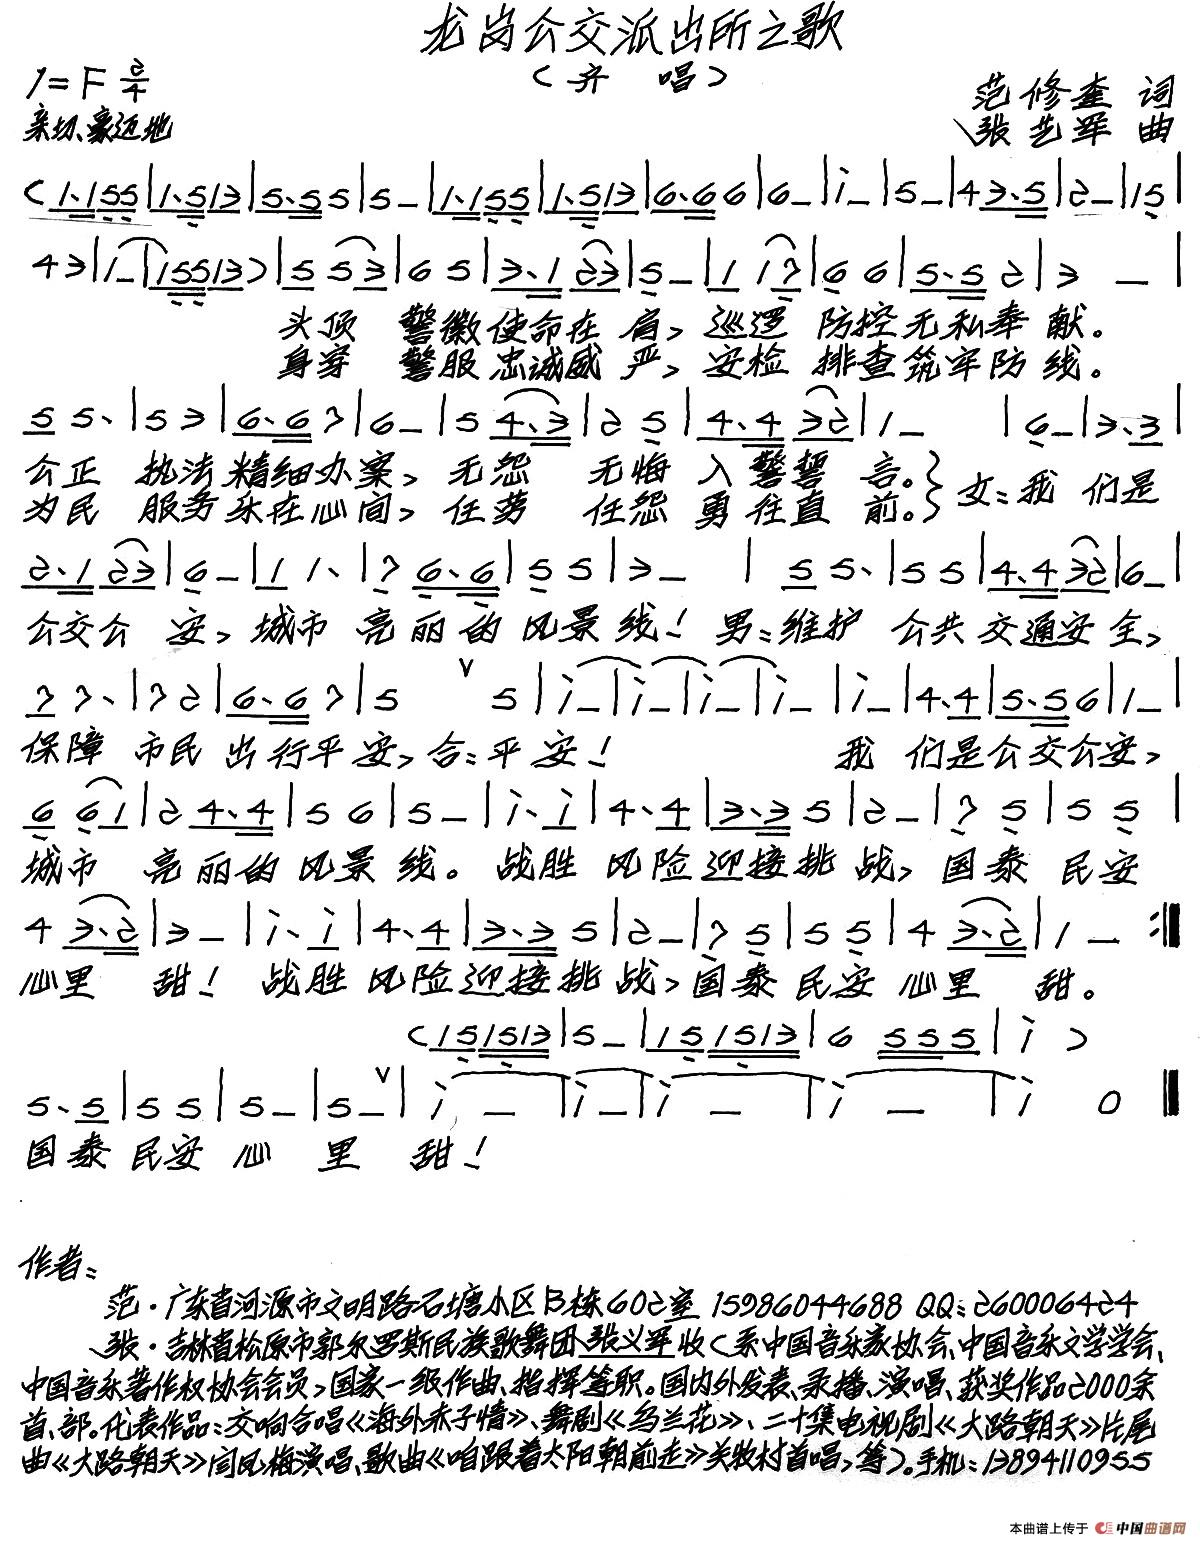 龙岗公交派出所之歌
（齐 唱）
1=F 2/4
亲切、豪迈地
范修奎 词
张艺军 曲
(1·155|1·513|5·55 5|5–|1·155|1·513|6·66 6|6–|i–|5–|4 3·5|2–|15|
4 3|1–|155513)|5 53|6 5|3·1 23|5–|1 17|6 6|5·5 2|3 –|
头顶 警徽使命在 肩，巡逻 防控无私奉 献。
身穿 警服忠诚威 严，安检 排查筑牢防 线。
5 5·|5 3|6·6 7|6–|5 4·3|2 5|4·4 32|1–|6–|3·3|
公正 执法精细办案，无怨 无悔 入警誓 言。} 女：我 们是
为民 服务乐在心间，任劳 任怨 勇往直 前。}
2·1 23|6–|1 1·|7 6·6|5 5|3–|5 5·|5 5|4·4 32|6–|
公交公 安，城市 亮丽的 风景线！男：维护 公共交通安全，
7 7·|7 2|6·6 7|5 ∨ 5|i–|i–|i–|i–|i–|4·4|5·5 6|1–|
保障 市民 出行平安，合：平安！ 我 们是公交公安，
6 61|2 4·4|5 6|5–|i·i|4·4|3·3 5|2–|7 5|5 5|
城市 亮丽的风景线。战胜 风险迎接挑 战，国泰 民安
4 3·2|3–|i·i|4·4|3·3 5|2–|7 5|5 5|4 3·2|1 –:‖
心里 甜！战胜 风险迎接挑 战，国泰民安 心里 甜。
(15 1513|5–|15 1513|6 555|i)
5·5|5 5|5–|5–∨|i –|i–|i –|i –|i 0‖
国泰 民安 心 里 甜！
作者：
范·广东省河源市文明路石塘小区B栋602室 15986044688 QQ：260006424
张·吉林省松原市郭尔罗斯民族歌舞团张义军收（系中国音乐家协会、中国音乐文学学会、
中国音乐著作权协会会员，国家一级作曲、指挥等职。国内外发表、录播、演唱、获奖作品2000余
首、部。代表作品：交响合唱《海外赤子情》、舞剧《乌兰花》、二十集电视剧《大路朝天》片尾
曲《大路朝天》闫凤梅演唱、歌曲《咱跟着太阳朝前走》关牧村首唱，等）。手机：13894110955
本曲谱上传于 中国曲谱网